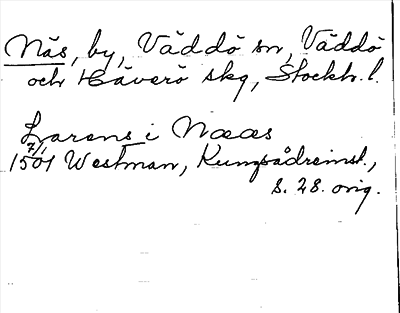 Näs, by, Väddö sn, Väddö
och Häverö skg, Stockh. l.
Larens i Næss
7/1
1501 Westman, Kungsådreinst.,
s. 28. orig.